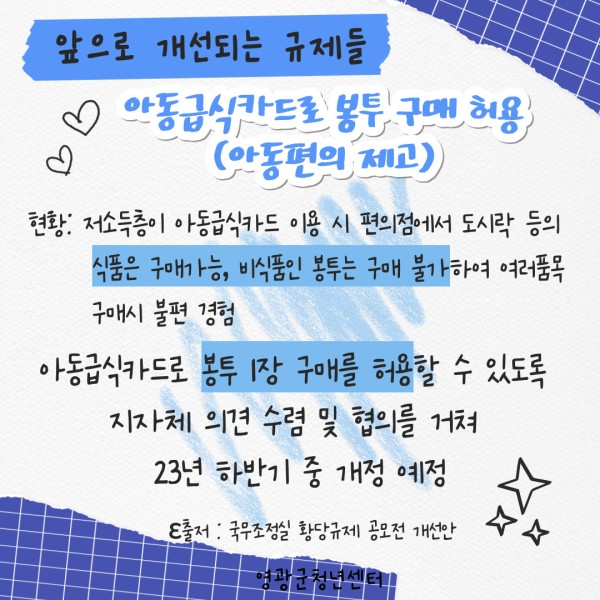 앞으로 개선되는 규제들
아동급식카드로 봉투 구매 허용
(아동편의 제고)
현황: 저소득층이 아동급식카드 이용 시 편의점에서 도시락 등의
식품은 구매가능, 비식품인 봉투는 구매 불가하여 여러품목
구매시 불편 경험
아동급식카드로 봉투 1장 구매를 허용할 수 있도록
지자체 의견 수렴 및 협의를 거쳐
23년 하반기 중 개정 예정
ε출저 : 국무조정실 황당규제 공모전 개선안
영광군청년센터